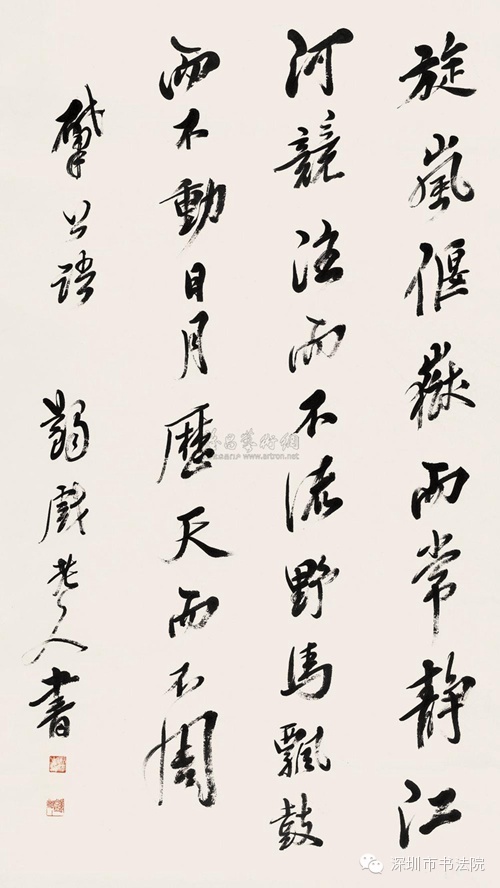 旋嵐偃嶽而常靜江
河競注而不流野馬飄鼓
而不動日月歷天而不周
肇公語
蠲戲老人書
www.artron.net
深圳市书法院